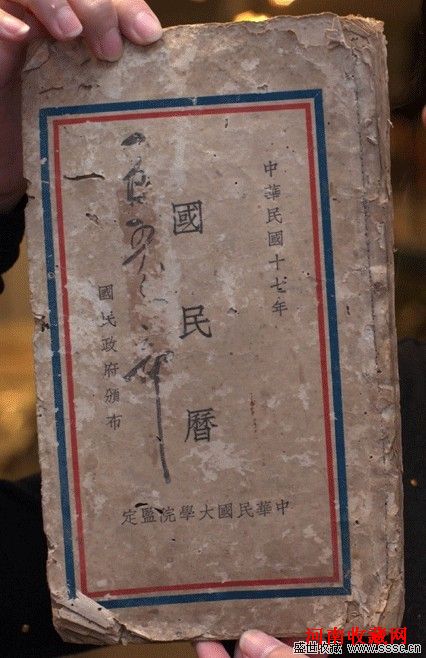 中華民國十七年
國民曆
國民政府頒布
中華民國大學院監定
河南收藏网
盛世收藏 www.sssc.cn